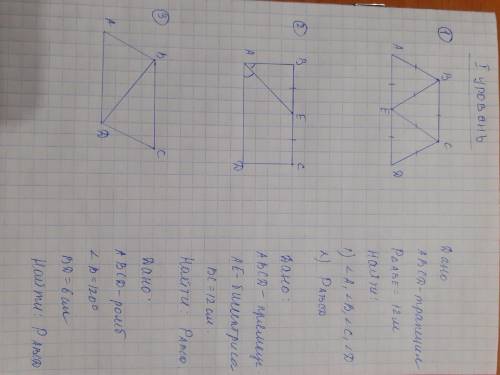 I уровень
①
A
B
C
D
E
Дано
ABCD-трапеция
P△ABE = 12м
Найти:
1) ∠A, ∠B, ∠C, ∠D
2) PABCD
②
A
B
E
C
D
Дано:
ABCD - прямоуг
AE-биссектриса
BC=12см
Найти: PABCD.
③
A
B
C
D
Дано:
ABCD-ромб
∠B=120°
BD=6см
Найти: PABCD